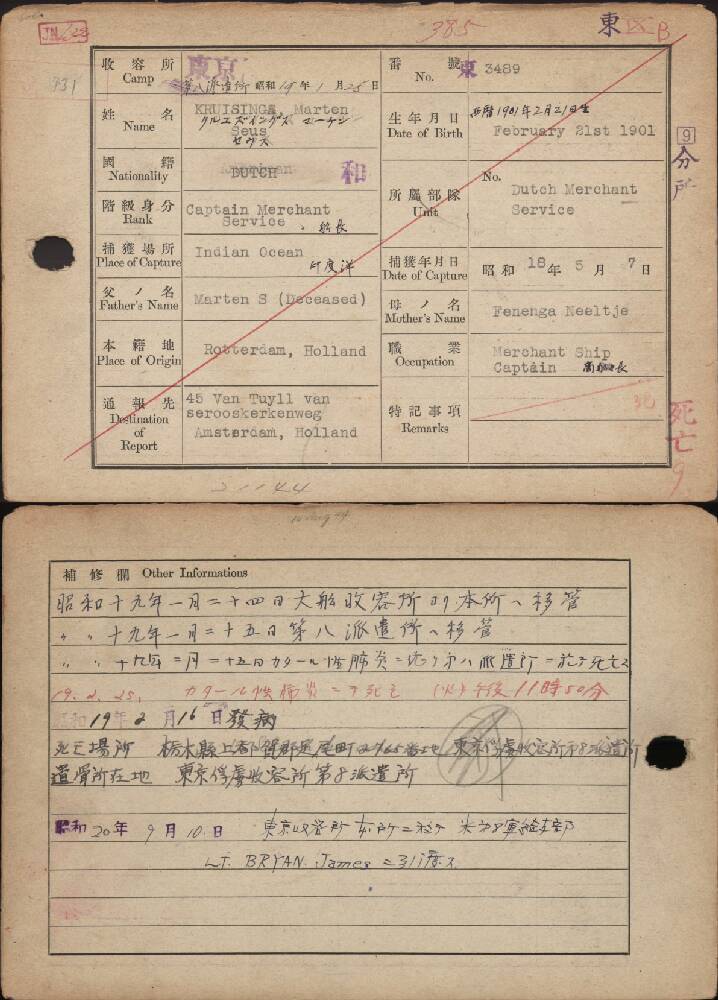 385
東 IX B
931
收容所
Camp
東京
第八派遣所 昭和19年1月25日
番號
No.
東 3489
姓名
Name
KRUISINGA, Marten
クルエズインガス マーテン
Seus
セウス
生年月日
Date of Birth
西暦1901年2月21日生
February 21st 1901
9
分所
國籍
Nationality
DUTCH
和
階級身分
Rank
Captain Merchant
Service. 船長
所屬部隊
Unit
No.
Dutch Merchant
Service
捕獲場所
Place of Capture
Indian Ocean
印度洋
捕獲年月日
Date of Capture
昭和 18年 5月 7日
父ノ名
Father's Name
Marten S (Deceased)
母ノ名
Mother's Name
Fenenga Neeltje
本籍地
Place of Origin
Rotterdam, Holland
職業
Occupation
Merchant Ship
Captain 商船長
通報先
Destination
of
Report
45 Van Tuyll van
serooskerkenweg
Amsterdam, Holland
特記事項
Remarks
死亡
9
補修欄 Other Informations
昭和十九年一月二十四日大船收容所ヨリ本所ヘ移管
〃 〃 十九年一月二十五日第八派遣所ヘ移管
〃 〃 十九年二月二十五日カタール性肺炎ニ於テ死亡ス
19.2.25. カタール性肺炎ニテ死亡 午後11時50分
昭和19年2月16日發病
死亡場所 栃木縣上都賀郡足尾町 東京俘虜收容所第8派遣所
遺骨所在地 東京俘虜收容所第8派遣所
昭和20年9月10日 東京收容所本所ニ於テ 米第8軍
LT. BRYAN. James ニ引渡ス